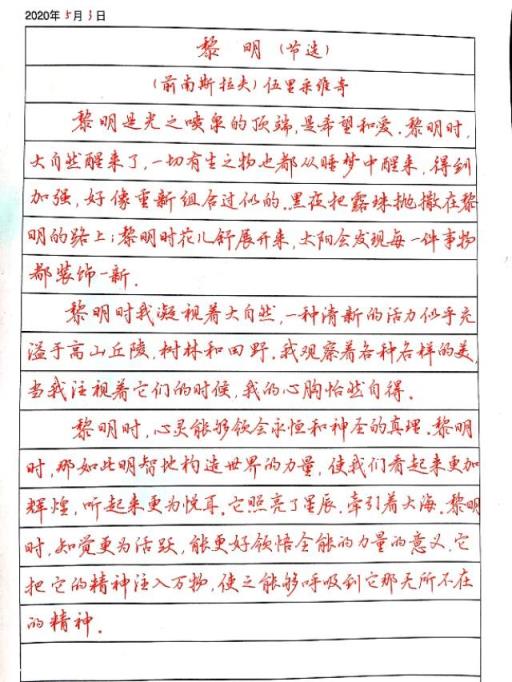 2020年5月3日
黎明（节选）
（前南斯拉夫）伍里采维奇
黎明是光之喷泉的顶端，是希望和爱．黎明时，
大自然醒来了，一切有生之物也都从睡梦中醒来，得到
加强，好像重新组合过似的．黑夜把露珠抛撒在黎
明的路上；黎明时花儿舒展开来，太阳会发现每一件事物
都装饰一新．
黎明时我凝视着大自然，一种清新的活力似乎充
溢于高山丘陵，树林和田野．我观察着各种各样的美，
当我注视着它们的时候，我的心胸怡然自得．
黎明时，心灵能够领会永恒和神圣的真理．黎明
时，那如此明智地构造世界的力量，使我们看起来更加
辉煌，听起来更为悦耳．它照亮了星辰，牵引着大海．黎明
时，知觉更为活跃，能更好领悟全能的力量的意义．它
把它的精神注入万物，使之能够呼吸到它那无所不在
的精神．